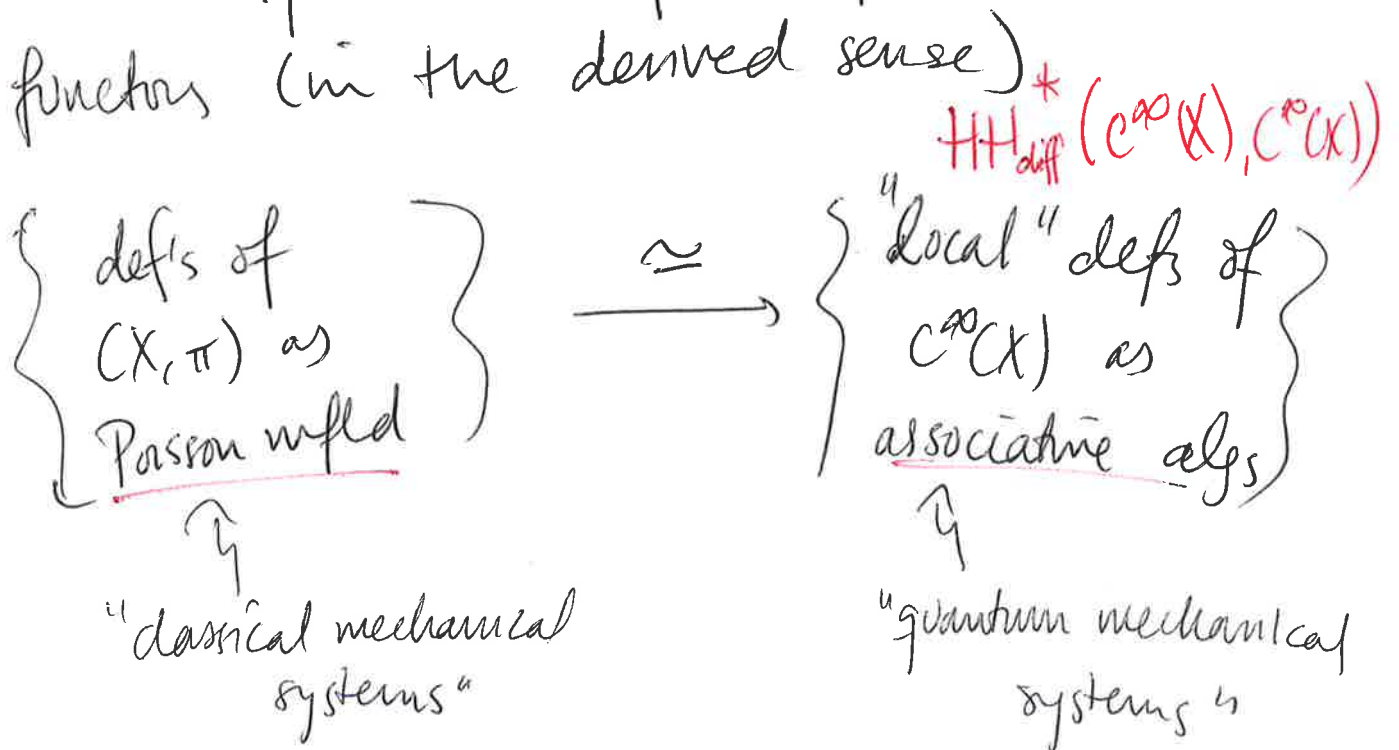 functors (in the derived sense)
HH*diff (C∞(X), C∞(X))
{ def's of (X, π) as Poisson mfld }
≃
{ "local" defs of C∞(X) as associative algs }
"classical mechanical systems"
"quantum mechanical systems"